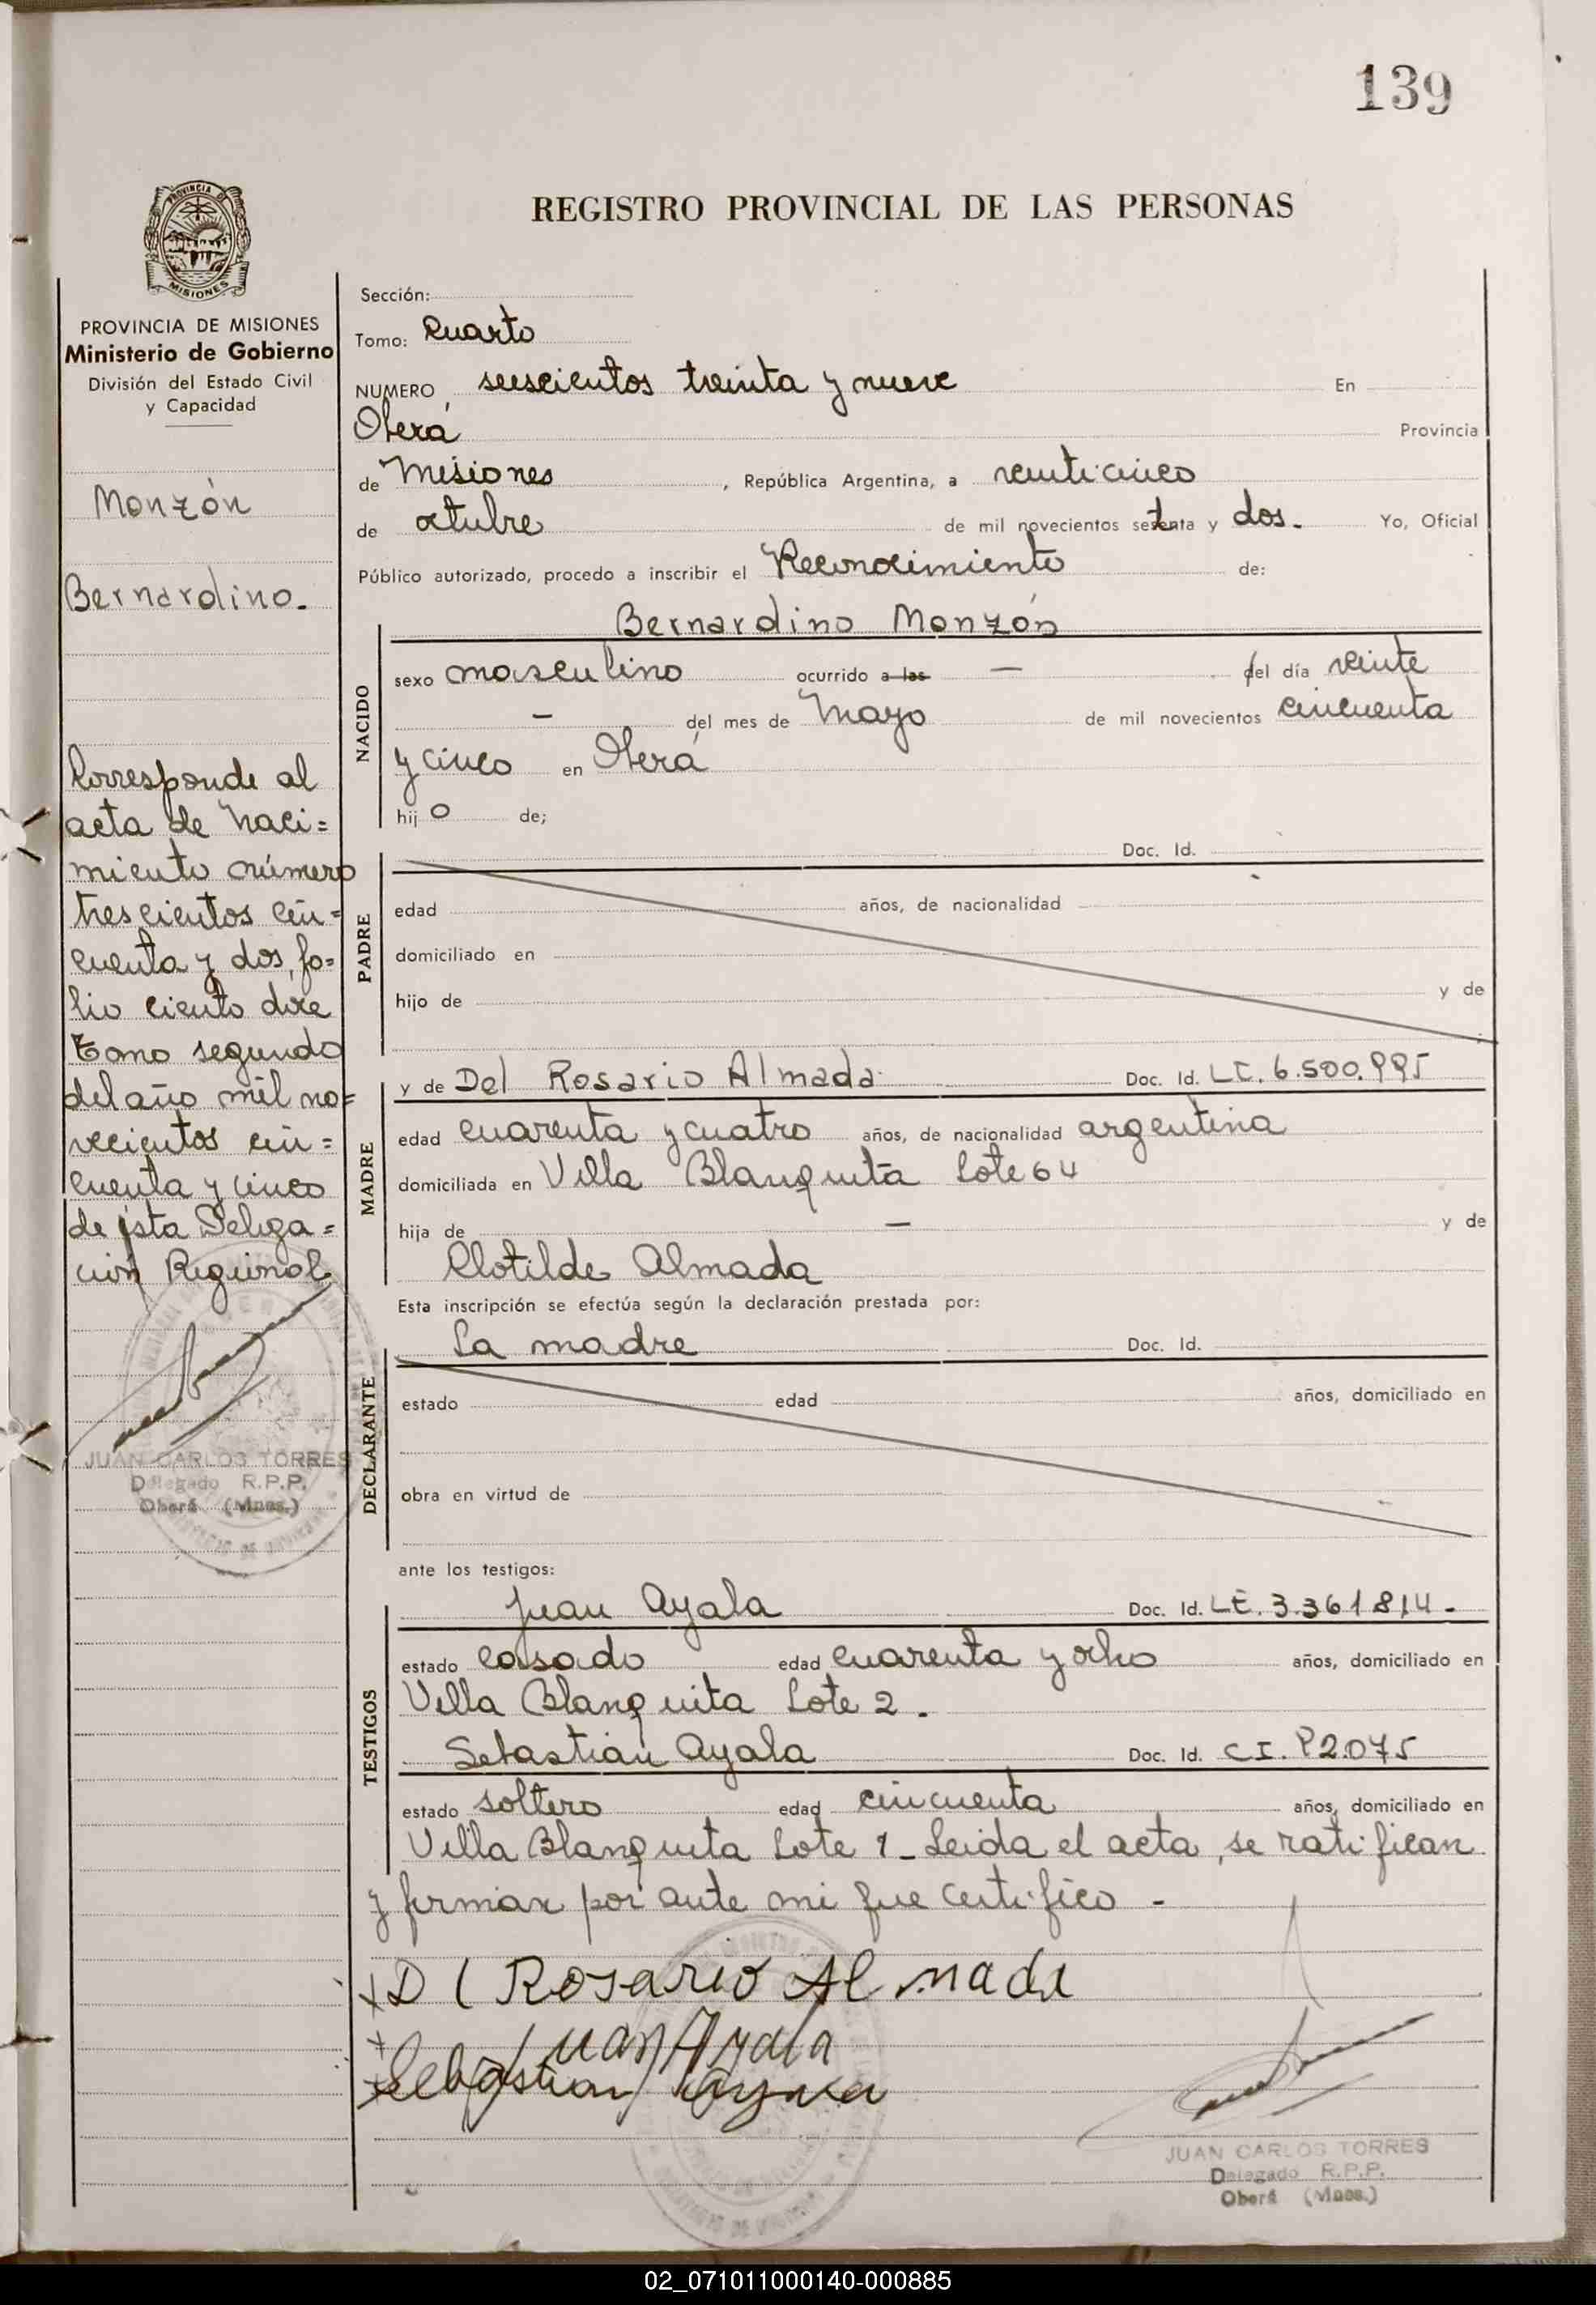 139
PROVINCIA DE MISIONES
REGISTRO PROVINCIAL DE LAS PERSONAS
PROVINCIA DE MISIONES
Ministerio de Gobierno
División del Estado Civil
y Capacidad
Monzón
Bernardino.
Corresponde al
acta de naci=
miento número
trescientos cin=
cuenta y dos, fo=
lio ciento doce
Tomo segundo
del año mil no=
vecientos cin=
cuenta y cinco
de ésta Delega=
ción Regional
JUAN CARLOS TORRES
Delegado R.P.P.
Oberá (Mnes.)
Sección:
Tomo: Cuarto
NUMERO seiscientos treinta y nueve En
Oberá Provincia
de Misiones, República Argentina, a veinticinco
de octubre de mil novecientos setenta y dos. Yo, Oficial
Público autorizado, procedo a inscribir el Reconocimiento de:
Bernardino Monzón
NACIDO
sexo masculino ocurrido a las — del día veinte
— del mes de Mayo de mil novecientos cincuenta
y cinco en Oberá
hijo de;
PADRE
Doc. Id.
edad años, de nacionalidad
domiciliado en
hijo de y de
MADRE
y de Del Rosario Almada Doc. Id. LC. 6.500.995
edad cuarenta y cuatro años, de nacionalidad argentina
domiciliada en Villa Blanquita Lote 64
hija de — y de
Clotilde Almada
Esta inscripción se efectúa según la declaración prestada por:
DECLARANTE
La madre Doc. Id.
estado edad años, domiciliado en
obra en virtud de
ante los testigos:
TESTIGOS
Juan Ayala Doc. Id. LE. 3.361.814.
estado casado edad cuarenta y ocho años, domiciliado en
Villa Blanquita Lote 2.
Sebastián Ayala Doc. Id. CI. 92.075
estado soltero edad cincuenta años, domiciliado en
Villa Blanquita Lote 1_ Leida el acta, se ratifican
y firman por ante mi que certifico -
D l Rosario Almada
Juan Ayala
Sebastian Ayala
JUAN CARLOS TORRES
Delegado R.P.P.
Oberá (Mnes.)
02_071011000140-000885